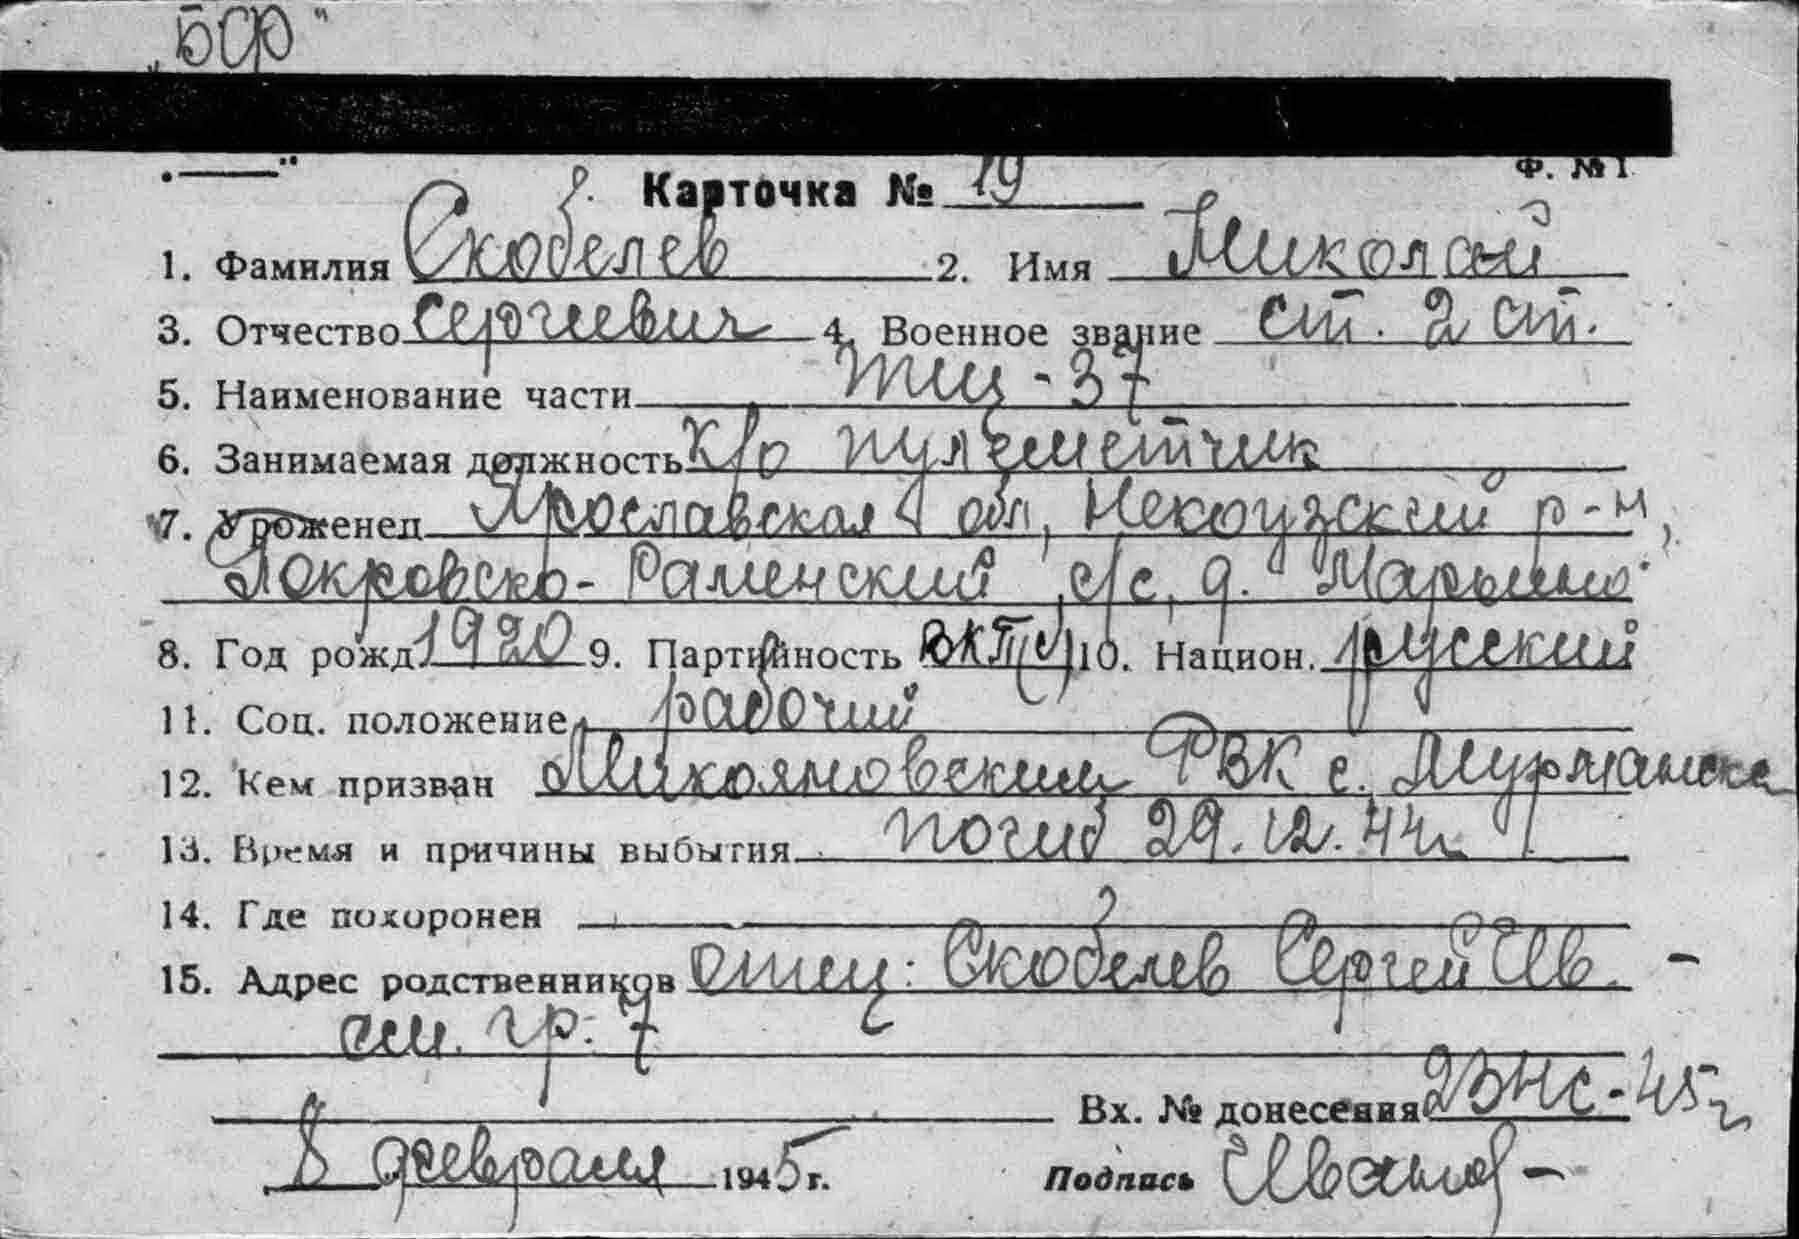 „БФ"
„——" Ф. № 1
Карточка № 19
1. Фамилия Скобелев 2. Имя Николай
3. Отчество Сергеевич 4. Военное звание ст. 2 ст.
5. Наименование части ТЩ-37
6. Занимаемая должность к/о пулеметчик
7. Уроженец Ярославская обл, Некоузский р-н,
Покровско-Раменский с/с, д. Марьино
8. Год рожд. 1920 9. Партийность ВКП(б) 10. Национ. русский
11. Соц. положение рабочий
12. Кем призван Микояновским РВК г. Мурманска
13. Время и причины выбытия погиб 29.12.44г.
14. Где похоронен
15. Адрес родственников отец: Скобелев Сергей Ив. –
см. гр. 7
Вх. № донесения 23нс-45г
8 февраля 1945 г. Подпись Иванов